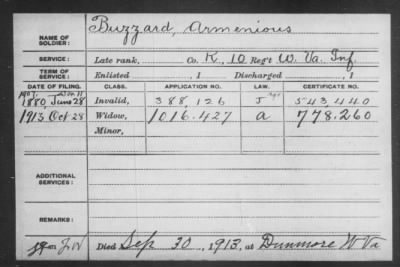 NAME OF SOLDIER: Buzzard, Armenious
SERVICE: Late rank, Co. K, 10 Reg't W. Va. Inf.
TERM OF SERVICE: Enlisted , 1 Discharged , 1
DATE OF FILING. CLASS. APPLICATION NO. LAW. CERTIFICATE NO.
1907.
1880, June 28 Invalid, 388,126 J 543,440
1913 Oct 28 Widow, 1016.427 a 778.260
Minor,
ADDITIONAL SERVICES:
REMARKS:
Died Sep 30, 1913, at Dunmore W Va